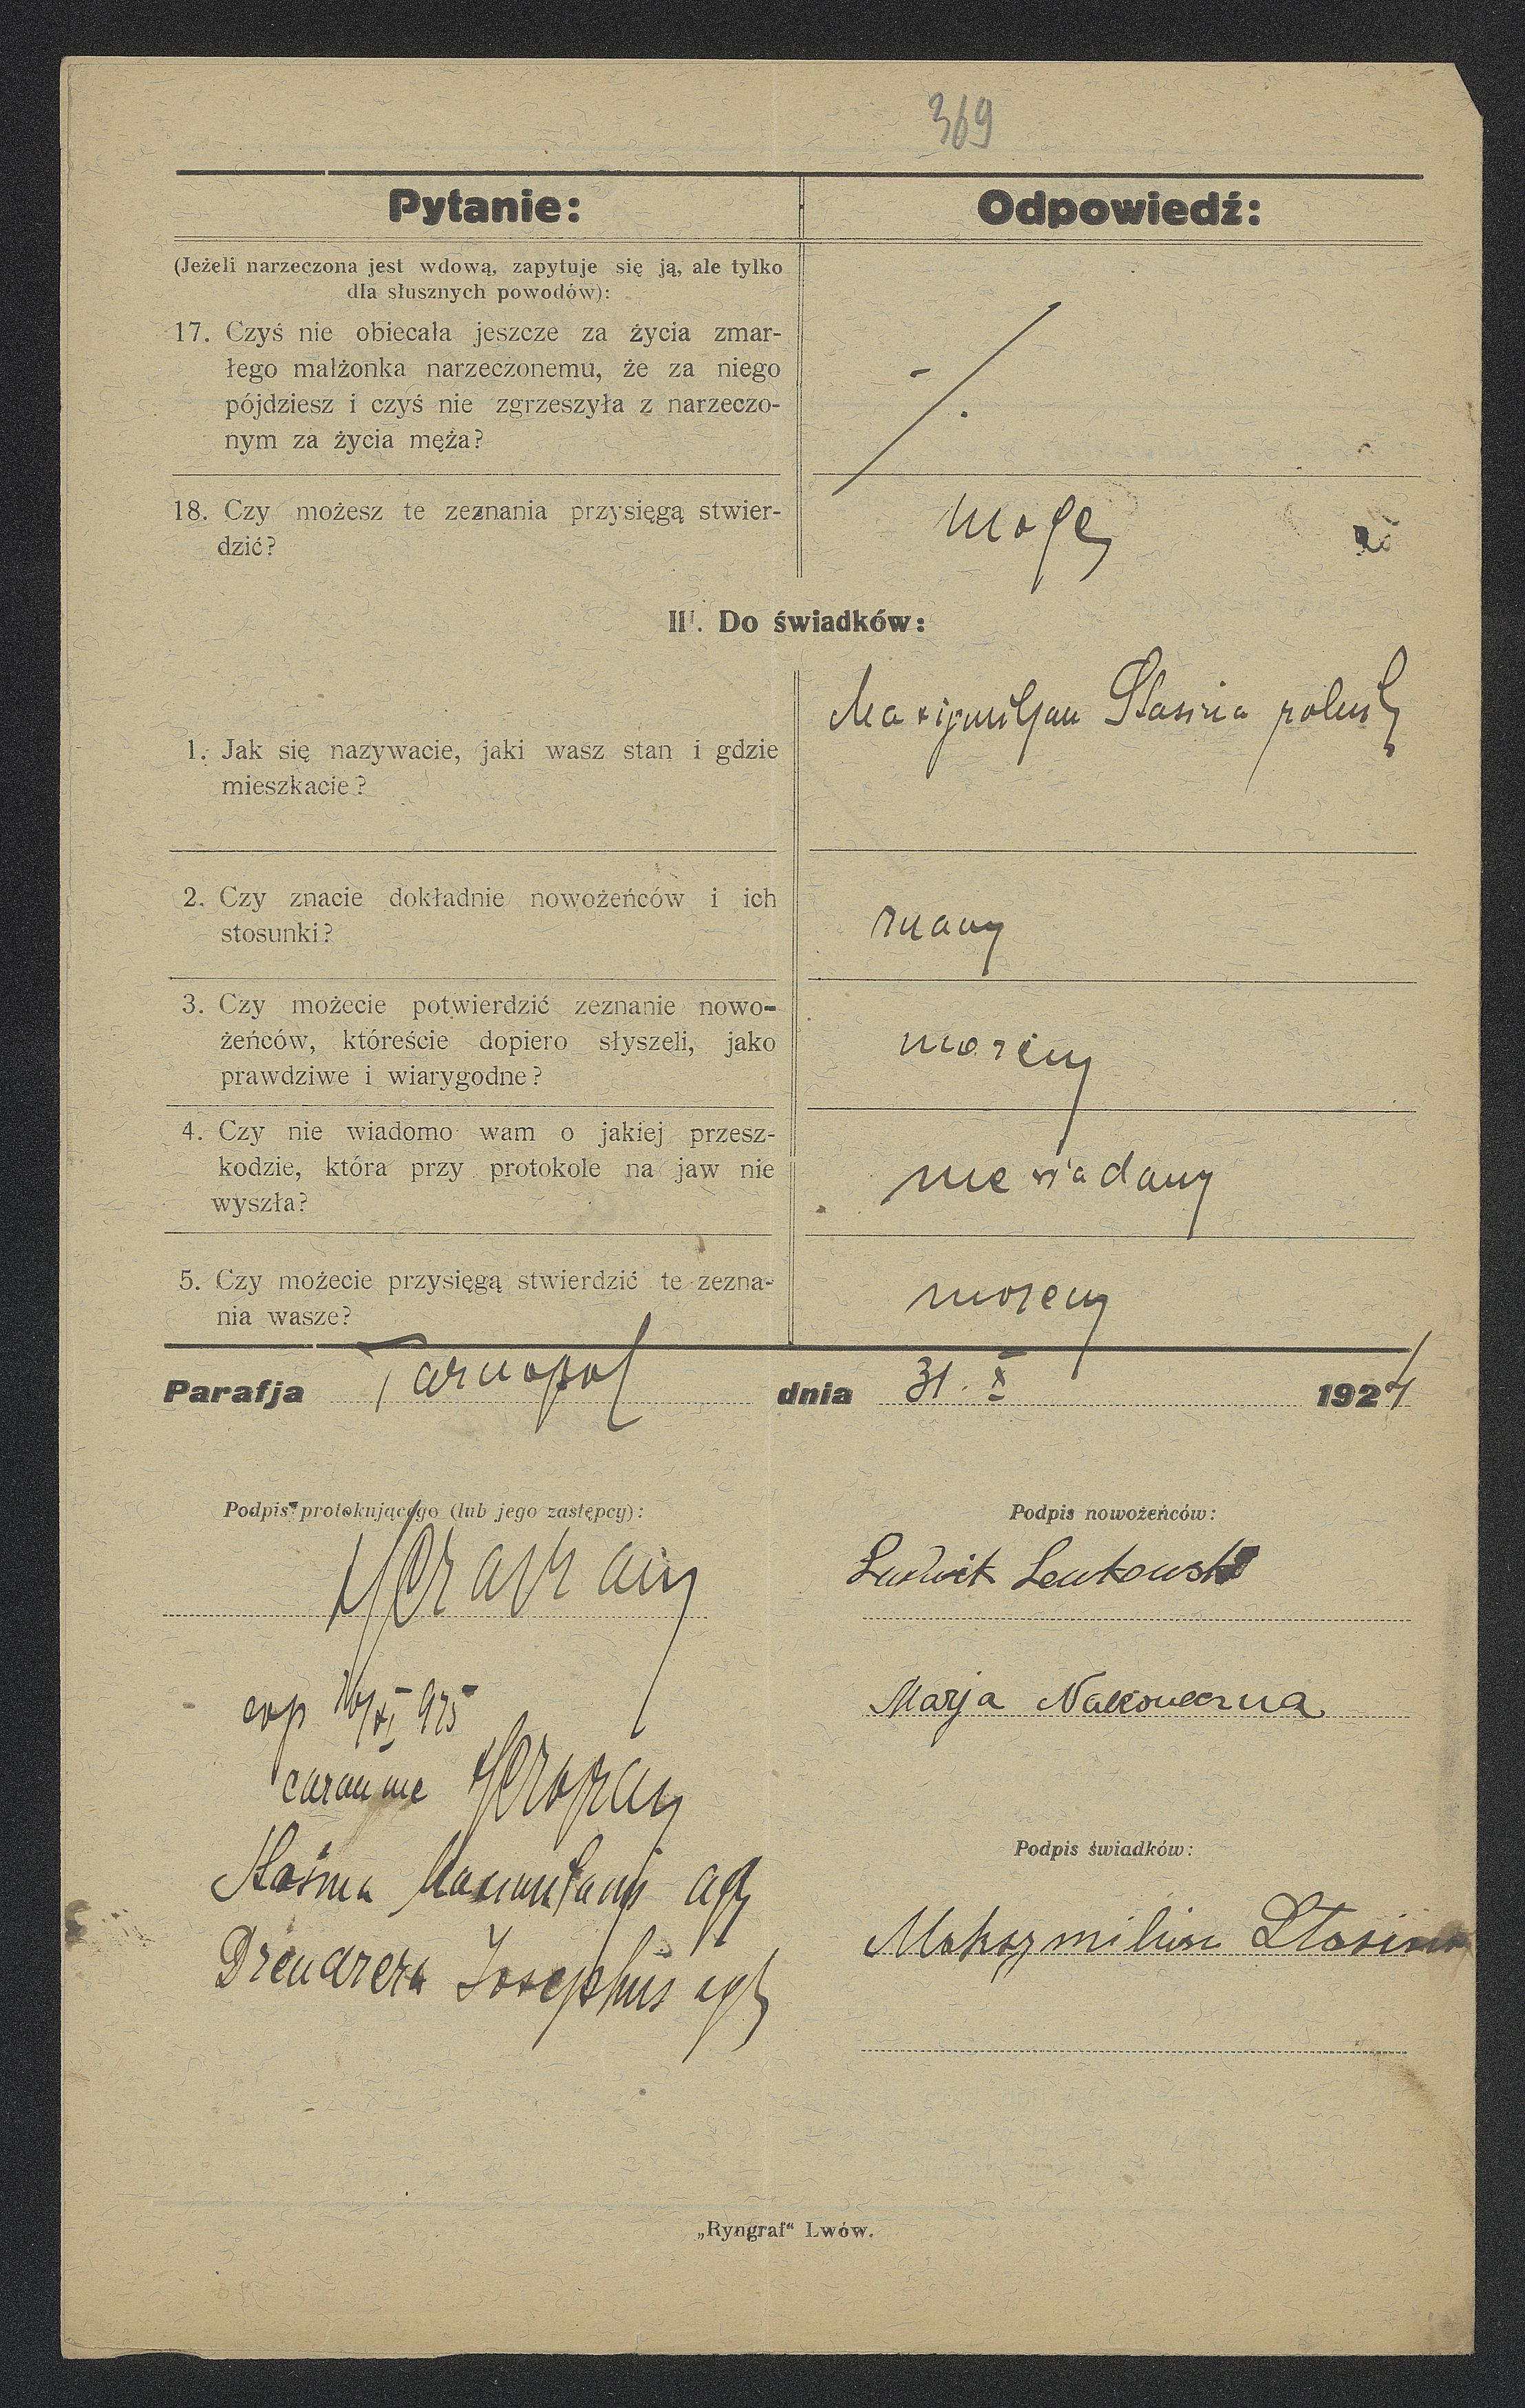 369
Pytanie:
Odpowiedź:
(Jeżeli narzeczona jest wdową, zapytuje się ją, ale tylko
dla słusznych powodów):
17. Czyś nie obiecała jeszcze za życia zmar-
łego małżonka narzeczonemu, że za niego
pójdziesz i czyś nie zgrzeszyła z narzeczo-
nym za życia męża?
18. Czy możesz te zeznania przysięgą stwier-
dzić?
mogę
III. Do świadków:
1. Jak się nazywacie, jaki wasz stan i gdzie
mieszkacie?
Maxijmiljan
2. Czy znacie dokładnie nowożeńców i ich
stosunki?
znamy
3. Czy możecie potwierdzić zeznanie nowo-
żeńców, któreście dopiero słyszeli, jako
prawdziwe i wiarygodne?
możemy
4. Czy nie wiadomo wam o jakiej przesz-
kodzie, która przy protokole na jaw nie
wyszła?
nie
5. Czy możecie przysięgą stwierdzić te zezna-
nia wasze?
możemy
Parafja Tarnopol dnia 31. X 1924
Podpis protokującego (lub jego zastępcy):
Podpis nowożeńców:
Ludwik Lentowski
cop 975
Marja Nakoneczna
coram me
Podpis świadków:
Josephus
Maksymilian Stasina
„Ryngraf“ Lwów.